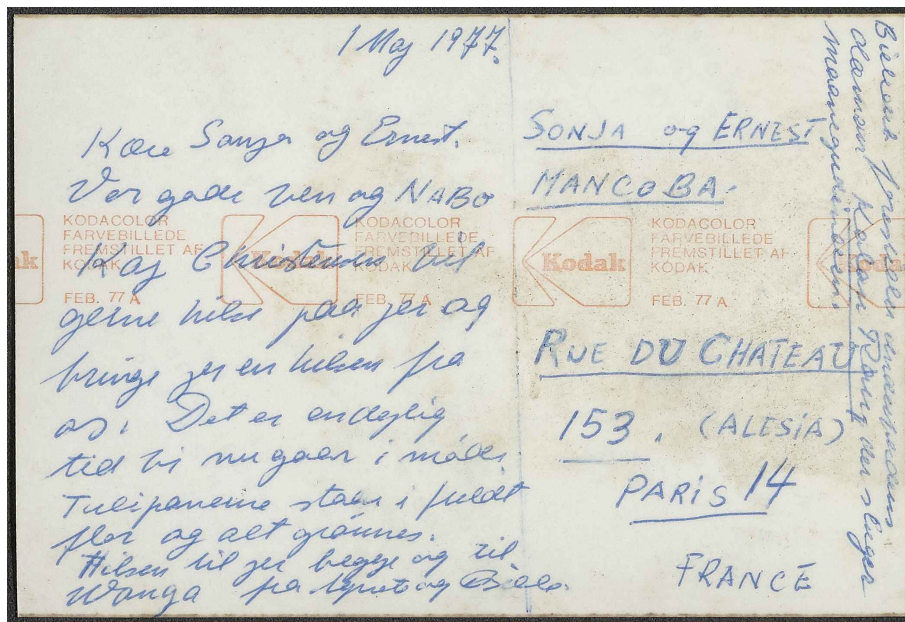 1 Maj 1977.
Kære Sonja og Ernest.
Vor gode ven og NABO
Kaj Christensen vil
gerne hilse paa jer og
bringe jer en hilsen fra
os. Det er en dejlig
tid vi nu gaar i møde.
Tulipanerne staar i fuldt
flor og alt grønnes.
Hilsen til jer begge og til
Wonga fra Agnete og
SONJA og ERNEST
MANCOBA.
RUE DU CHATEAU
153. (ALESIA)
PARIS 14
FRANCE
Billedet forestiller
der slynger
KODACOLOR
FARVEBILLEDE
FREMSTILLET AF
KODAK
FEB. 77 A
Kodak
KODACOLOR
FARVEBILLEDE
FREMSTILLET AF
KODAK
FEB. 77 A
Kodak
KODACOLOR
FARVEBILLEDE
FREMSTILLET AF
KODAK
FEB. 77 A